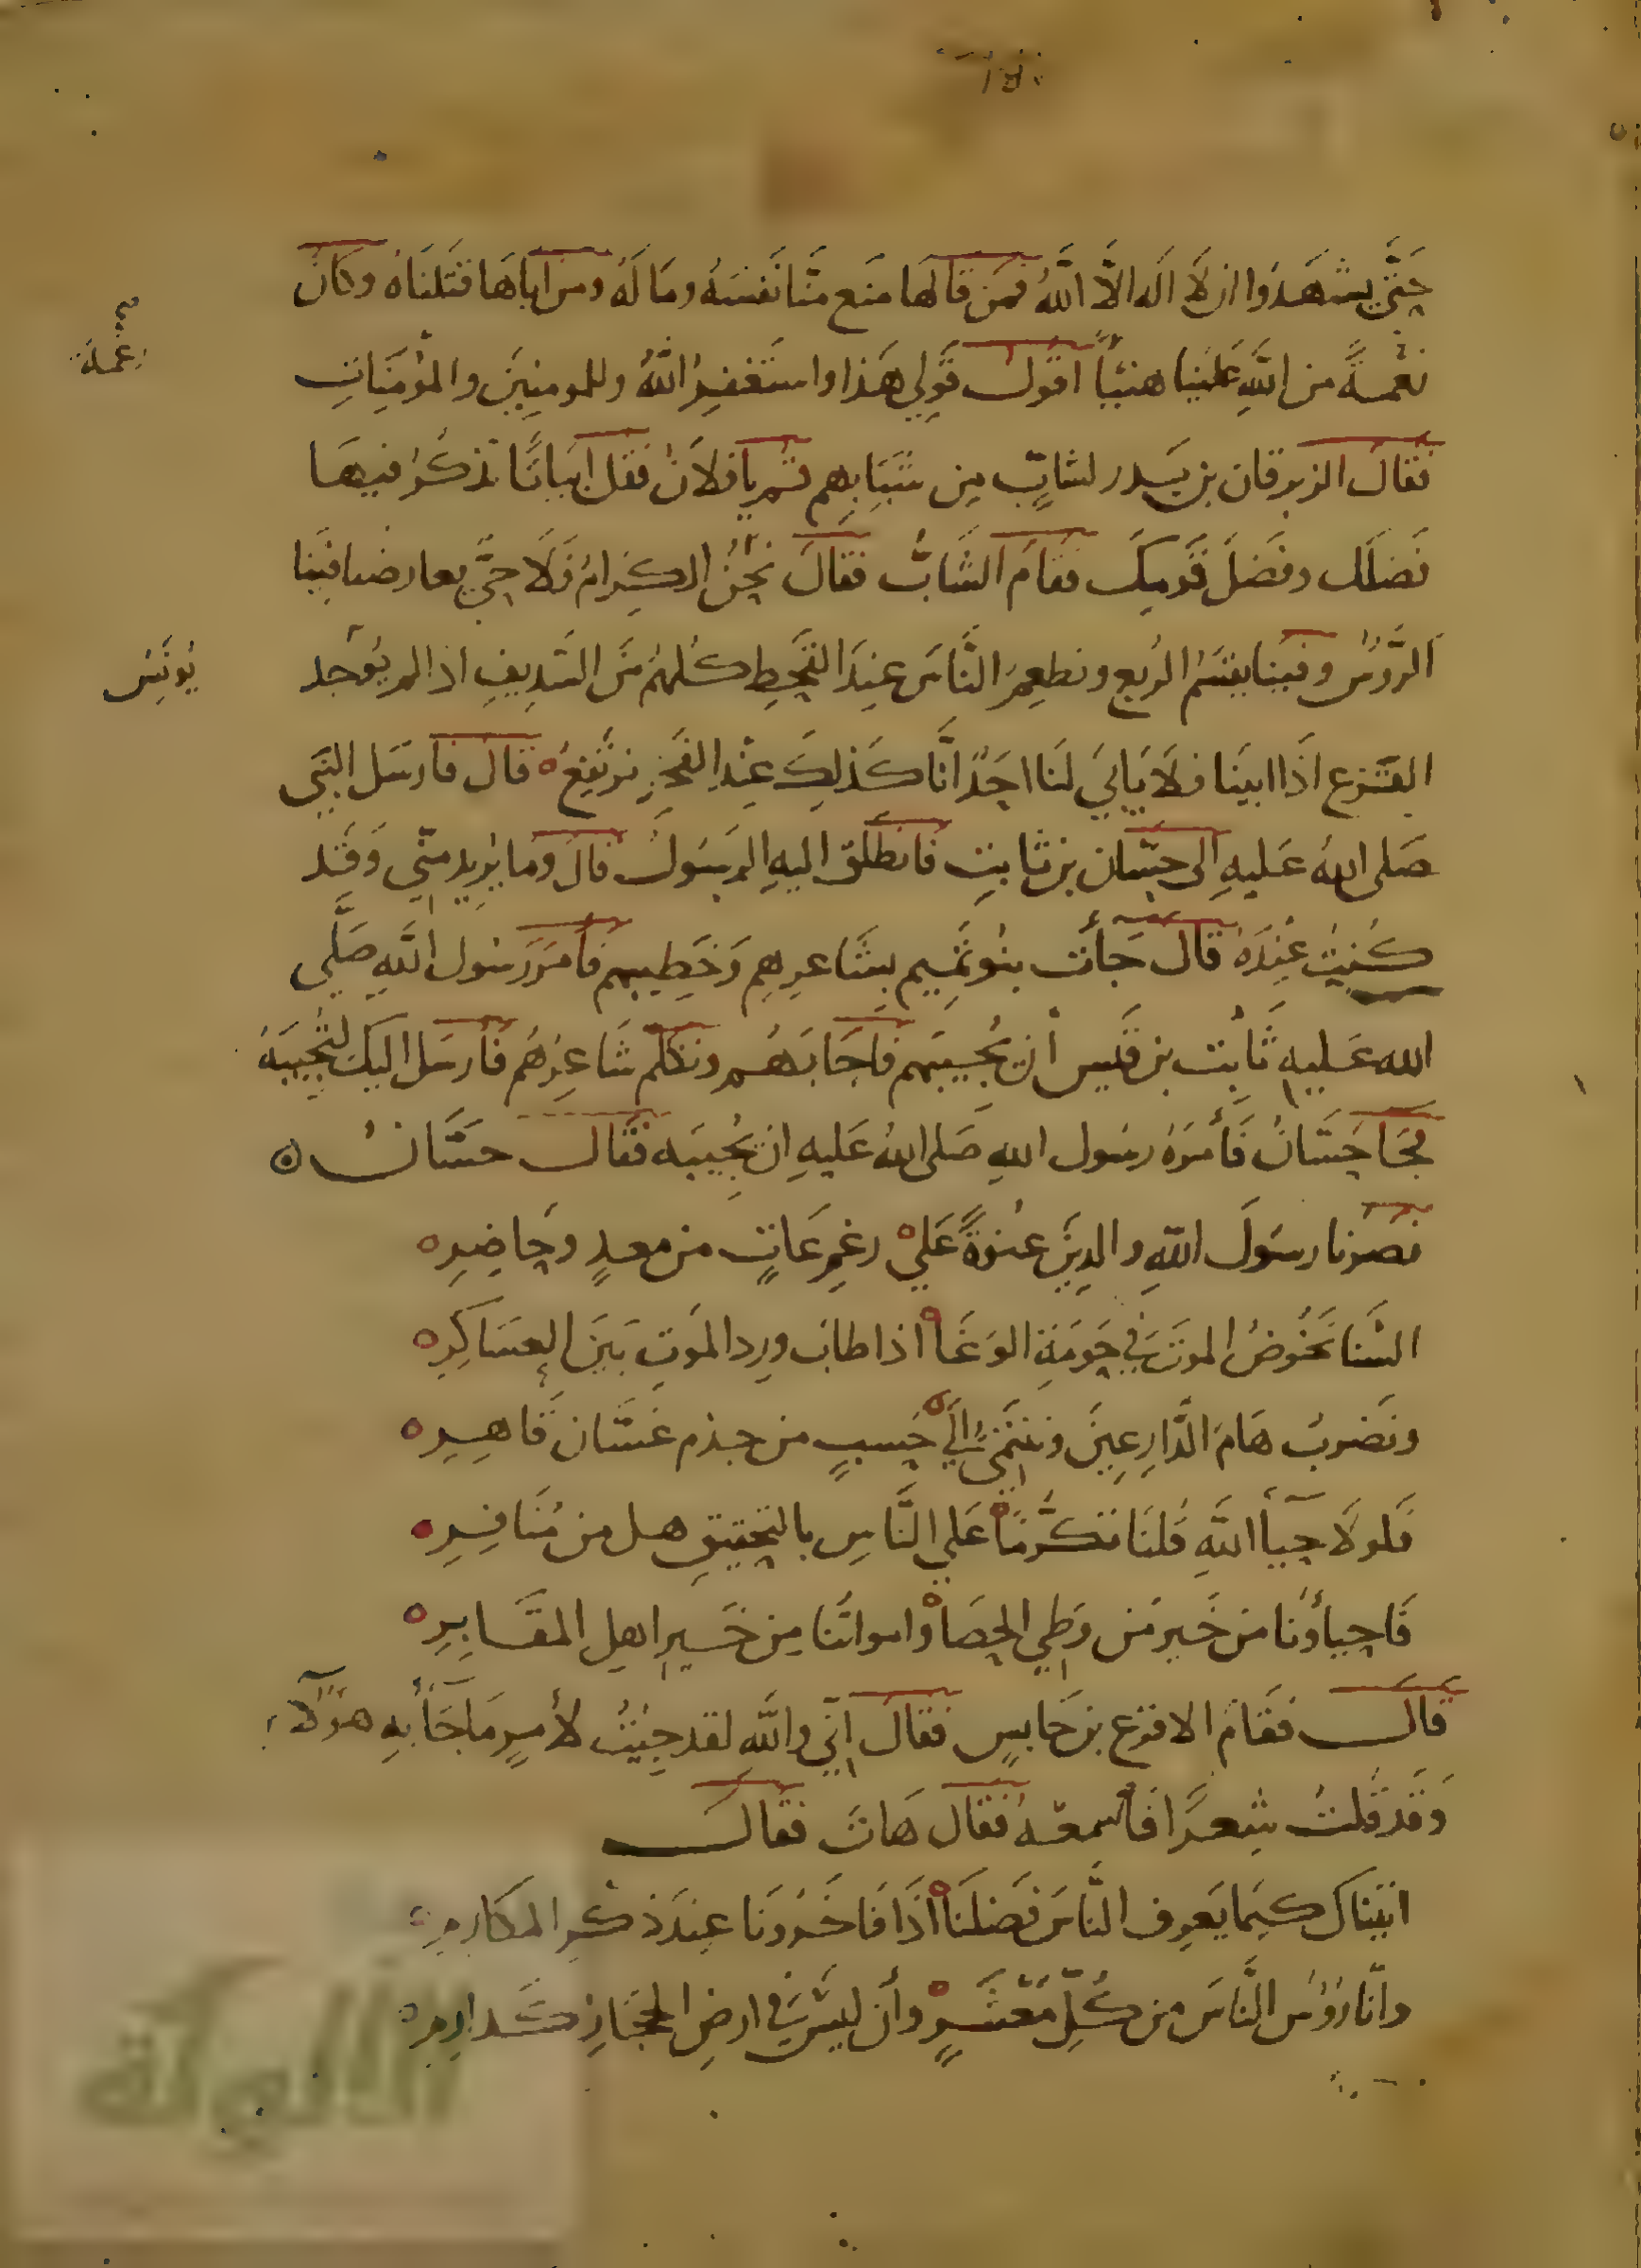 حَتَّى يشْهَدُوا ان لَا اله الَّا اللَّهُ فمَن قالها مَنع منَّا نَفسَهُ ومَالَهُ ومن اباهَا قتَلنَاهُ وكانَ
نعْمةً من اللَّهِ علينا هَيّنًا اقول قَولي هَذا واستَغفِرُ اللَّهُ وللمومنِينَ والمُؤمنَاتِ
نعمة
فقالَ الزبرقان بن بَدر لشابٍّ مِن شبَابِهم قم يا فلانُ فقل ابيَاتًا تذكرُ فيهَا
فَضلَك وفَضلَ قَومِكَ فقامَ الشَّابُّ فقالَ نَحْنُ الكِرَامُ فَلَا حَيٌّ يعارضنا فينَا
الرُّؤوسُ وفينَا يقسَمُ الرُبع ونطعِمُ النَّاسَ عِندَ القَحطِ كُلهُمُ مِنَ السَّدِيفِ اذا لم يُوجد
يُونَسِ
القَزع اذَا ابينَا فلَا يَابَى لَنا احَدٌ انَّا كَذلِكَ عِنْدَ الفَخْرِ نرتَفِعُ ه قال فارسَل النبَي
صَلى اللهُ عَليهِ الى حسَّان بن ثابتٍ فانطَلقَ اليهِ الرسَولُ فالَ وما يُريد منّي وَقَد
كُنتُ عِندَهُ قال جَأت بنُو تَميم بشَاعرِهِم وَخَطِيبهم فأَمَرَ رسُول اللَّهِ صَلَّى
الله عَليهِ ثَابت بن قَيس أن يُجيبَهم فاجَابَهُم وتكلّم شَاعِرُهُم فأرسَل اليكَ لتُجيبَهُ
فجَا حَسَّانُ فَأمَرَهُ رسُول اللهِ صَلى اللهُ عَليهِ ان يُجيبَه فقال حسَّانُ ه
نصَرنا رسَولَ اللهِ والدِينَ عنوَةً عَلَى رغمِ عَاتٍ من معدٍ وحَاضِرِ ه
السْنَا نَخُوضُ الموتَ في حَومَةِ الوَغَا اذا طابَ ورد الموَتِ بَينَ العسَاكِرِ ه
ونَضربُ هَامَ الدَّارِعِينَ وننتَمِي الَي حَسبٍ من جذم غسَّان قَاهِرِ ه
فَلولَا حيأ اللَّهِ قُلنَا تكَرُّمًا عَلي النَّاسِ بالخيفِ هل من مُنَافِرِ ه
فَاحياؤُنا من خَير مَن وَطِي الحصَا وامواتُنا مِن خَيرِ اهلِ المقَابِرِ ه
قال فقَامَ الاقرَع بن حَابسٍ فقالَ اِنّي واللَّهِ لقد جئتُ لأمرٍ مَا جَأَ بهِ هؤلآء
وَقَد قُلتُ شعرًا فأَسمعْهُ فقال هَاتَ فقالَ
اتينَاك كيمَا يَعرِف النَّاسَ فَضلَنَا اذَا فَاخَرُونَا عِندَ ذِكرِ المكَارمِ
وانَّا رُؤُسُ النَّاسَ من كُلِّ مَعْشَرٍ وأَن ليَسَ في ارضِ الحجَازِ كدارِمِ ه